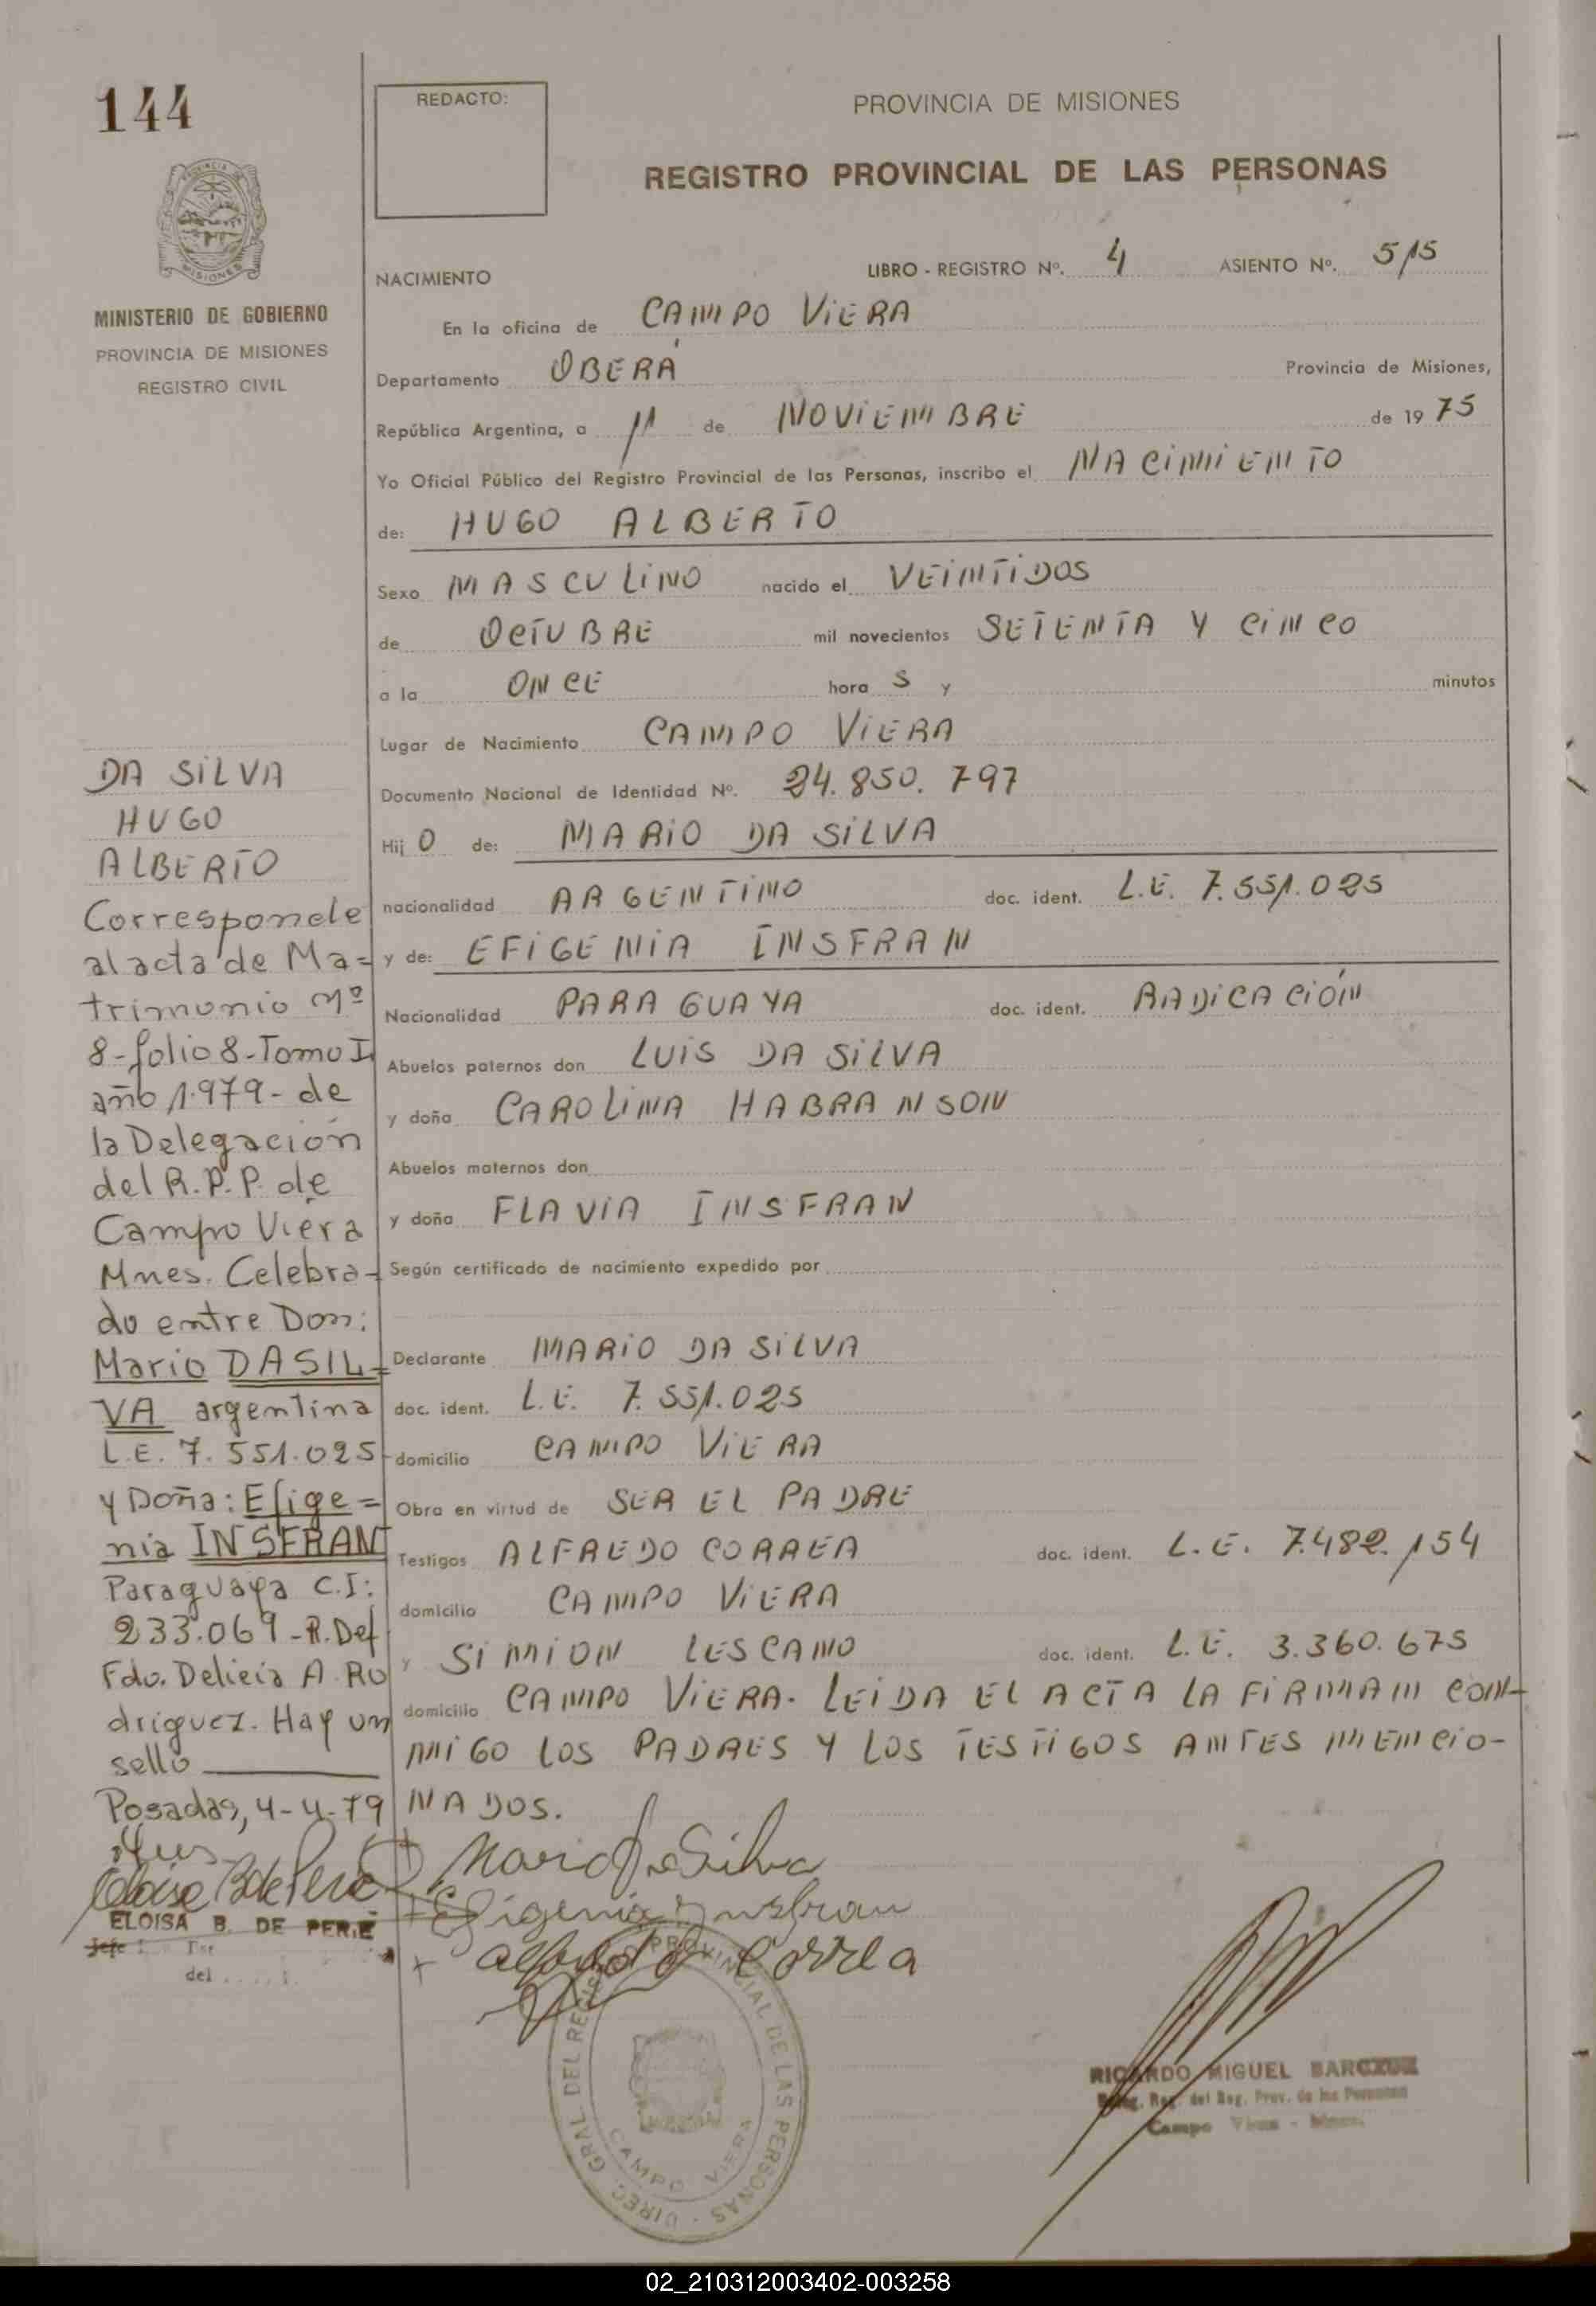 144
REDACTO:
PROVINCIA DE MISIONES
REGISTRO PROVINCIAL DE LAS PERSONAS
MISIONES
MINISTERIO DE GOBIERNO
PROVINCIA DE MISIONES
REGISTRO CIVIL
NACIMIENTO
LIBRO - REGISTRO Nº. 4 ASIENTO Nº. 515
En la oficina de CAMPO VIERA
Departamento OBERÁ Provincia de Misiones,
República Argentina, a 11 de NOVIEMBRE de 1975
Yo Oficial Público del Registro Provincial de las Personas, inscribo el NACIMIENTO
de: HUGO ALBERTO
Sexo MASCULINO nacido el VEINTIDOS
de OCTUBRE mil novecientos SETENTA Y CINCO
a la ONCE hora S y minutos
Lugar de Nacimiento CAMPO VIERA
Documento Nacional de Identidad Nº. 24.850.797
Hij O de: MARIO DA SILVA
nacionalidad ARGENTINO doc. ident. L.E. 7.551.025
y de: EFIGENIA INSFRAN
Nacionalidad PARAGUAYA doc. ident. RADICACIÓN
Abuelos paternos don LUIS DA SILVA
y doña CAROLINA HABRANSON
Abuelos maternos don
y doña FLAVIA INSFRAN
Según certificado de nacimiento expedido por
Declarante MARIO DA SILVA
doc. ident. L.E. 7.551.025
domicilio CAMPO VIERA
Obra en virtud de SER EL PADRE
Testigos ALFREDO CORREA doc. ident. L.E. 7.482.154
domicilio CAMPO VIERA
y SIMION LESCANO doc. ident. L.E. 3.360.675
domicilio CAMPO VIERA. LEIDA EL ACTA LA FIRMAN CON-
MIGO LOS PADRES Y LOS TESTIGOS ANTES MENCIO-
NADOS.
DA SILVA
HUGO
ALBERTO
Corresponde
al acta de Ma=
trimonio Nº
8-folio 8-Tomo I
año 1.979- de
la Delegación
del R.P.P. de
Campo Viera
Mnes. Celebra-
do entre Don:
Mario DA SIL=
VA argentina
L.E. 7.551.025
y Doña: Efige=
nia INSFRAN
Paraguaya C.I:
233.069-R.Def
Fdo. Delicia A. Ro
driguez. Hay un
sello
Posadas, 4-4-79
ELOISA B. DE PERIE
Jefe
del
Mario Da Silva
+ Efigenia Insfran
+ Alfredo Correa
DIREC. GRAL. DEL REGISTRO PROVINCIAL DE LAS PERSONAS
CAMPO VIERA
RICARDO MIGUEL
Reg. del Reg. Prov. de las Personas
Campo Viera - Mnes.
02_210312003402-003258